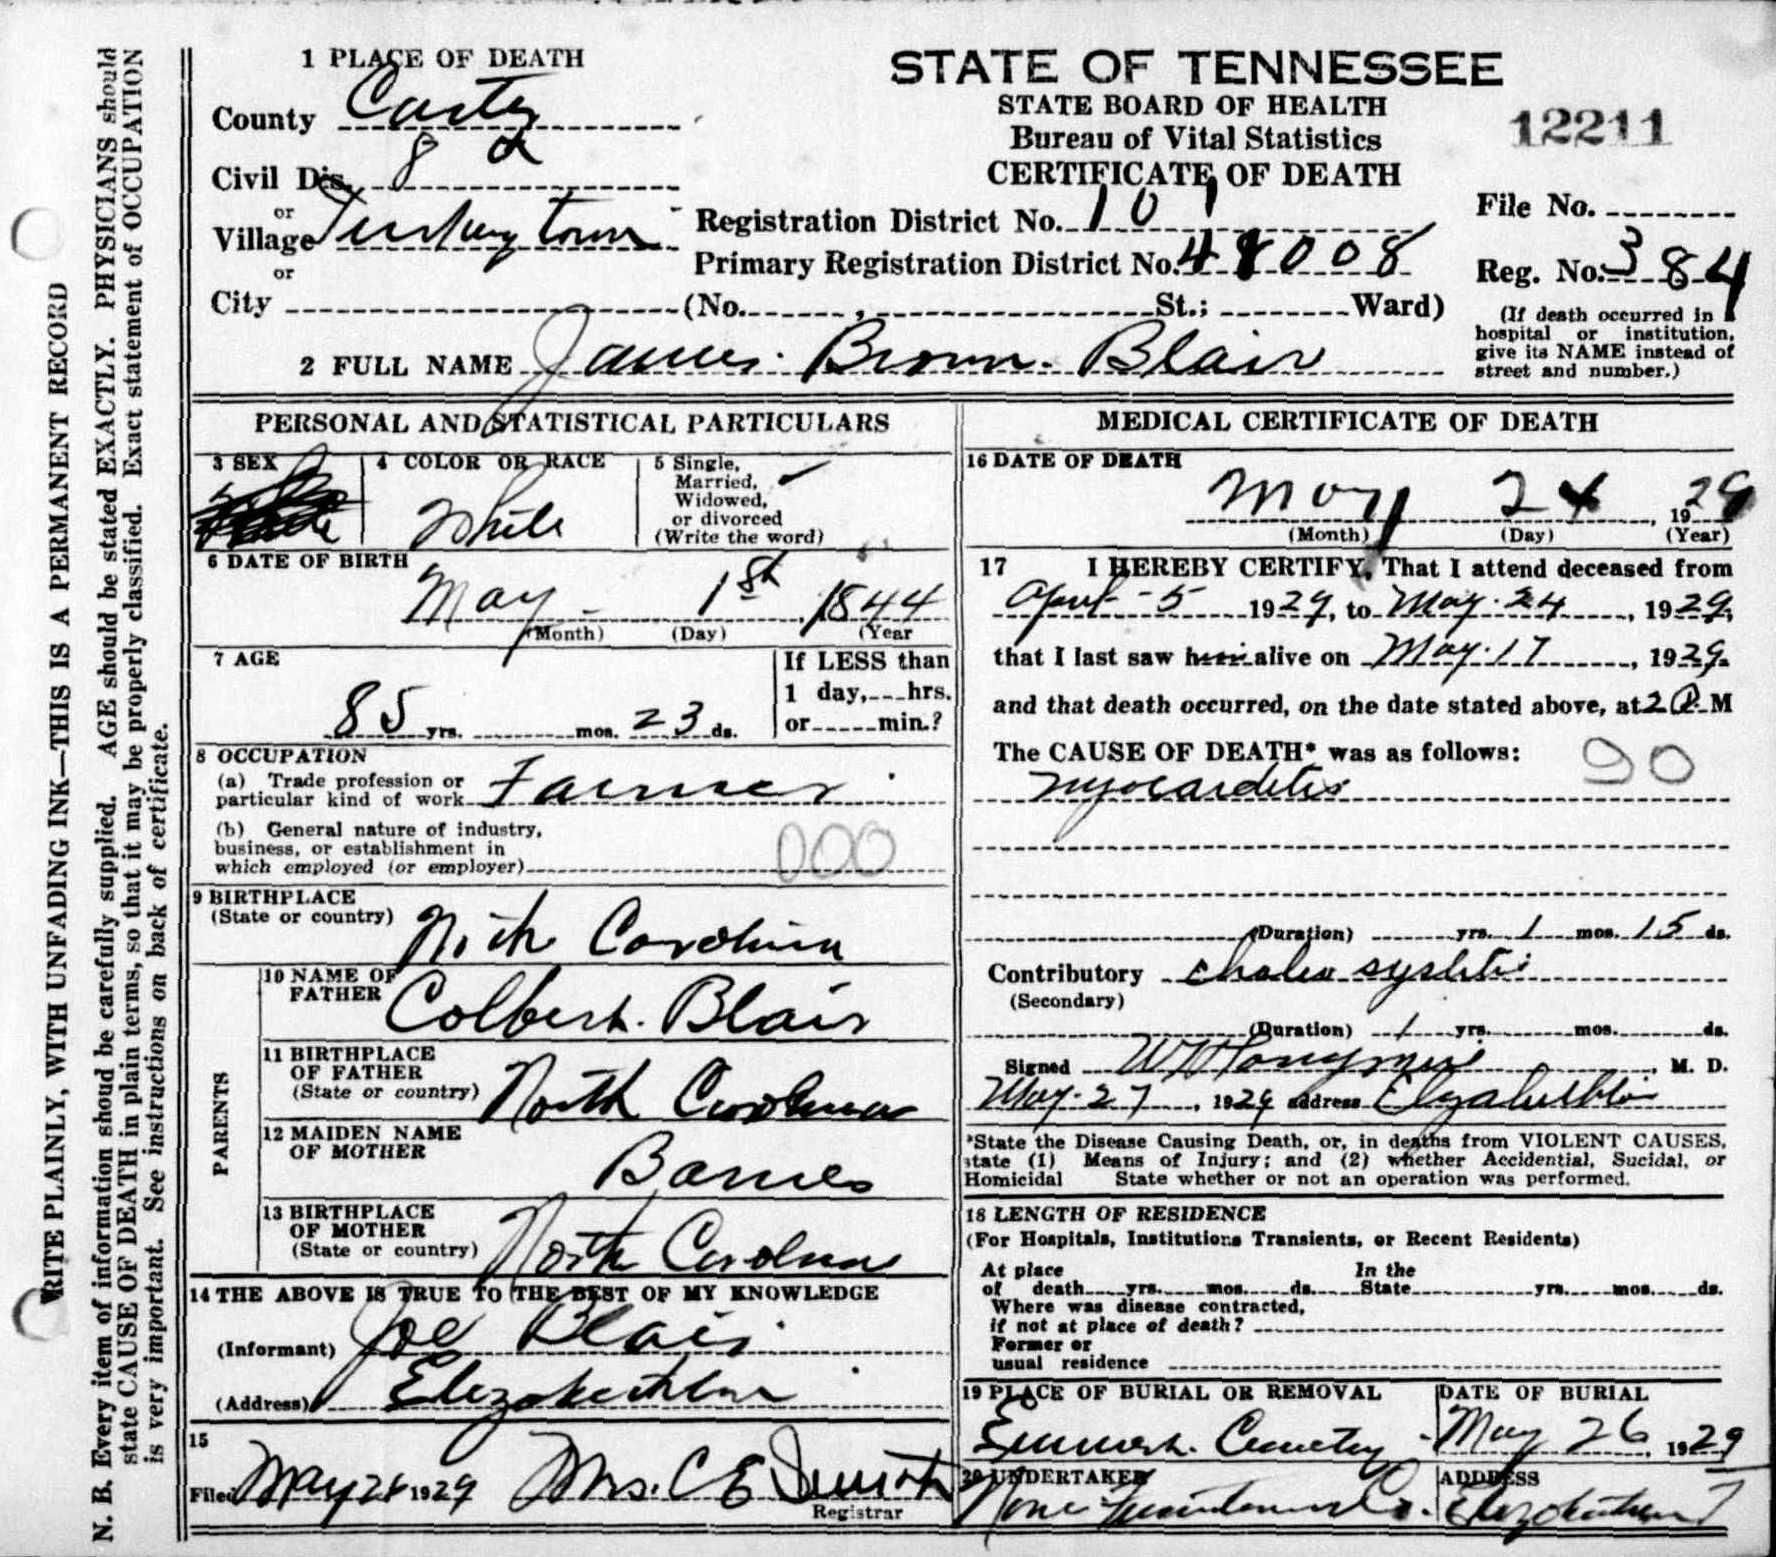 STATE OF TENNESSEE
STATE BOARD OF HEALTH
Bureau of Vital Statistics
CERTIFICATE OF DEATH
12211
1 PLACE OF DEATH
County Carter
Civil Dis. 8
or
Village Turkeytown
or
City (No. , St.; Ward)
Registration District No. 101
Primary Registration District No. 48008
File No.
Reg. No. 384
(If death occurred in a
hospital or institution,
give its NAME instead of
street and number.)
2 FULL NAME James Brown Blair
PERSONAL AND STATISTICAL PARTICULARS
3 SEX
4 COLOR OR RACE
White
5 Single,
Married,
Widowed,
or divorced
(Write the word)
6 DATE OF BIRTH
May 1st, 1844
(Month) (Day) (Year
7 AGE
85 yrs. mos. 23 ds.
If LESS than
1 day, hrs.
or min.?
8 OCCUPATION
(a) Trade profession or
particular kind of work Farmer
(b) General nature of industry,
business, or establishment in
which employed (or employer)
000
9 BIRTHPLACE
(State or country)
Nith Carolina
PARENTS
10 NAME OF
FATHER
Colbert Blair
11 BIRTHPLACE
OF FATHER
(State or country) North Carolina
12 MAIDEN NAME
OF MOTHER
Barnes
13 BIRTHPLACE
OF MOTHER
(State or country) North Carolina
14 THE ABOVE IS TRUE TO THE BEST OF MY KNOWLEDGE
(Informant) Joe Blair
(Address) Elizabethton
15
Filed May 28 1929 Mrs. C E Smith
Registrar
MEDICAL CERTIFICATE OF DEATH
16 DATE OF DEATH
May 24, 1929
(Month) (Day) (Year)
17 I HEREBY CERTIFY, That I attend deceased from
April 5 1929, to May 24, 1929,
that I last saw him alive on May 17, 1929.
and that death occurred, on the date stated above, at 2 P. M
The CAUSE OF DEATH* was as follows:
90
Myocarditis
(Duration) yrs. 1 mos. 15 ds.
Contributory Chole systitis
(Secondary)
(Duration) 1 yrs. mos. ds.
Signed M. D.
May 27, 1929 address Elizabethton
*State the Disease Causing Death, or, in deaths from VIOLENT CAUSES,
state (1) Means of Injury; and (2) whether Accidential, Sucidal, or
Homicidal State whether or not an operation was performed.
18 LENGTH OF RESIDENCE
(For Hospitals, Institutions Transients, or Recent Residents)
At place In the
of death yrs. mos. ds. State yrs. mos. ds.
Where was disease contracted,
if not at place of death?
Former or
usual residence
19 PLACE OF BURIAL OR REMOVAL
Cemetery
DATE OF BURIAL
May 26, 1929
20 UNDERTAKER
ADDRESS
Co. Elizabethton T
WRITE PLAINLY, WITH UNFADING INK—THIS IS A PERMANENT RECORD
N. B. Every item of information shoud be carefully supplied. AGE should be stated EXACTLY. PHYSICIANS should
state CAUSE OF DEATH in plain terms, so that it may be properly classified. Exact statement of OCCUPATION
is very important. See instructions on back of certificate.